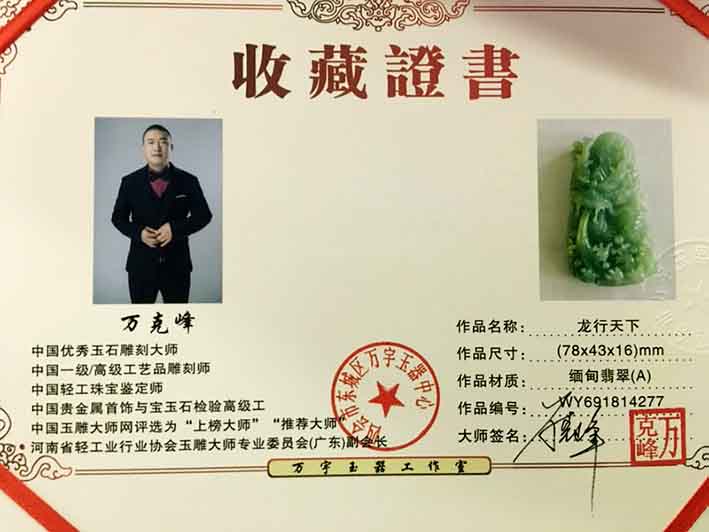 收藏證書
万克峰
中国优秀玉石雕刻大师
中国一级/高级工艺品雕刻师
中国轻工珠宝鉴定师
中国贵金属首饰与宝玉石检验高级工
中国玉雕大师网评选为“上榜大师”“推荐大师”
河南省轻工业行业协会玉雕大师专业委员会(广东)副会长
作品名称: 龙行天下
作品尺寸: (78x43x16)mm
作品材质: 缅甸翡翠(A)
作品编号: WY691814277
大师签名: 万克峰
四会市东城区万字玉器中心
万克峰
万字玉器工作室